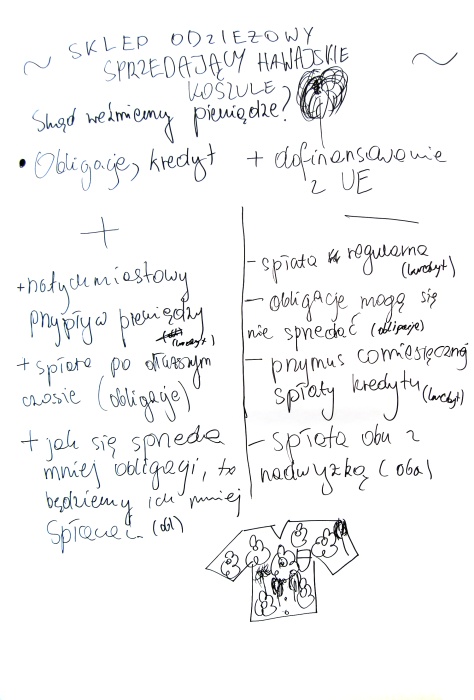 ~ SKLEP ODZIEŻOWY ~
SPRZEDAJĄCY HAWAJSKIE
KOSZULE
Skąd weźmiemy pieniądze?
• Obligacje, kredyt + dofinansowanie
z UE
+
+ natychmiastowy
przypływ pieniędzy
(kredyt)
+ spłata po dłuższym
czasie (obligacje)
+ jak się sprzeda
mniej obligacji, to
będziemy ich mniej
spłacać. (obl)
—
- spłata regularna
(kredyt)
- obligacje mogą się
nie sprzedać (obligacje)
- przymus comiesięcznej
spłaty kredytu (kredyt)
- spłata obu z
nadwyżką (oba)